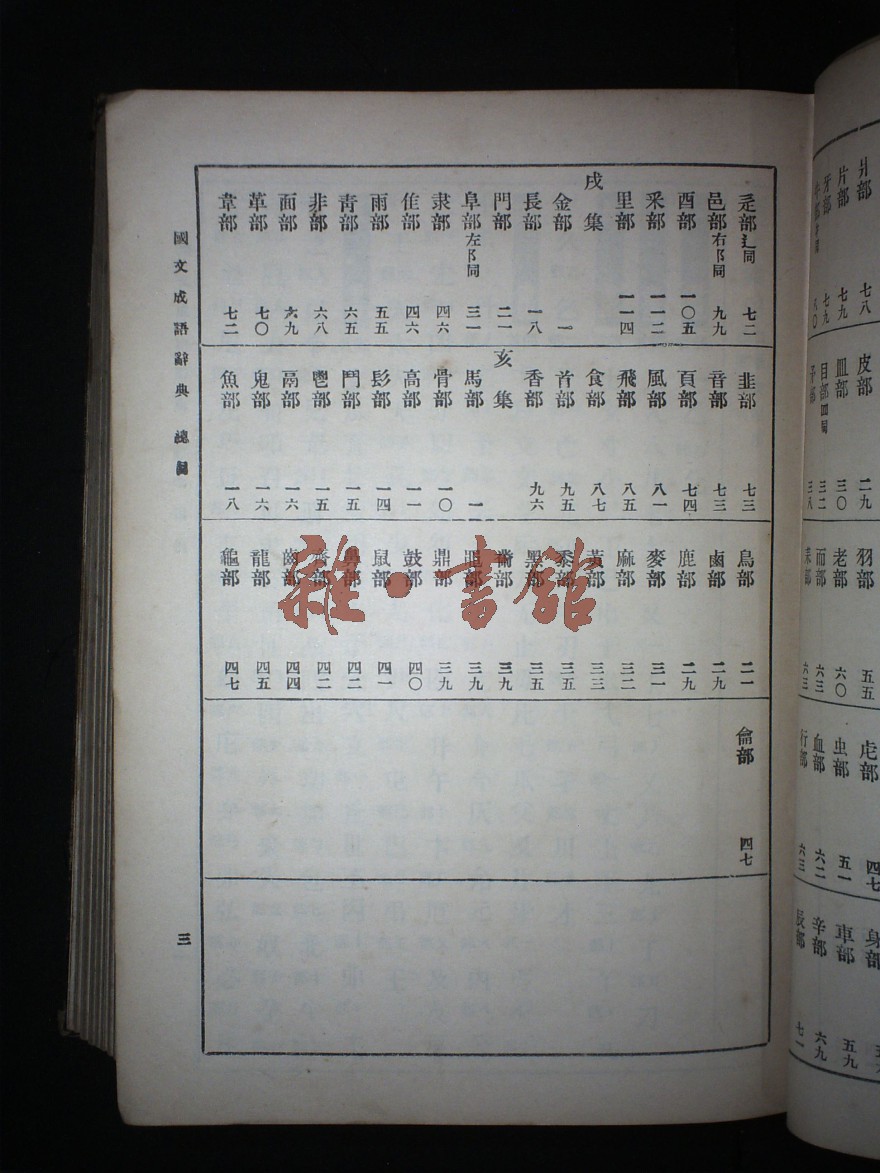 爿部 七八
片部 七九
牙部 七九
皮部 二九
皿部 三〇
目部罒同 三二
矛部 三八
羽部 五五
老部 六〇
而部 六三
耒部 六三
虍部 四七
虫部 五一
血部 六二
行部 六三
身部
車部 五九
辛部 六九
辰部 七一
辵部辶同 七二
邑部右阝同 九九
酉部 一〇五
釆部 一一二
里部 一一四
戌集
金部 一
長部 一八
門部 二一
阜部左阝同 三一
隶部 四六
隹部 四六
雨部 五五
青部 六五
非部 六八
面部 六九
革部 七〇
韋部 七二
韭部 七三
音部 七三
頁部 七四
風部 八一
飛部 八五
食部 八七
首部 九五
香部 九六
亥集
馬部 一
骨部 一〇
高部 一一
髟部 一四
鬥部 一五
鬯部 一五
鬲部 一六
鬼部 一六
魚部 一八
鳥部 二一
鹵部 二九
鹿部 二九
麥部 三一
麻部 三二
黃部 三三
黍部 三五
黑部 三五
黹部 三九
黽部 三九
鼎部 三九
鼓部 四〇
鼠部 四一
鼻部 四二
齊部 四二
齒部 四四
龍部 四五
龜部 四七
龠部 四七
國文成語辭典 總目
三
雜·書館